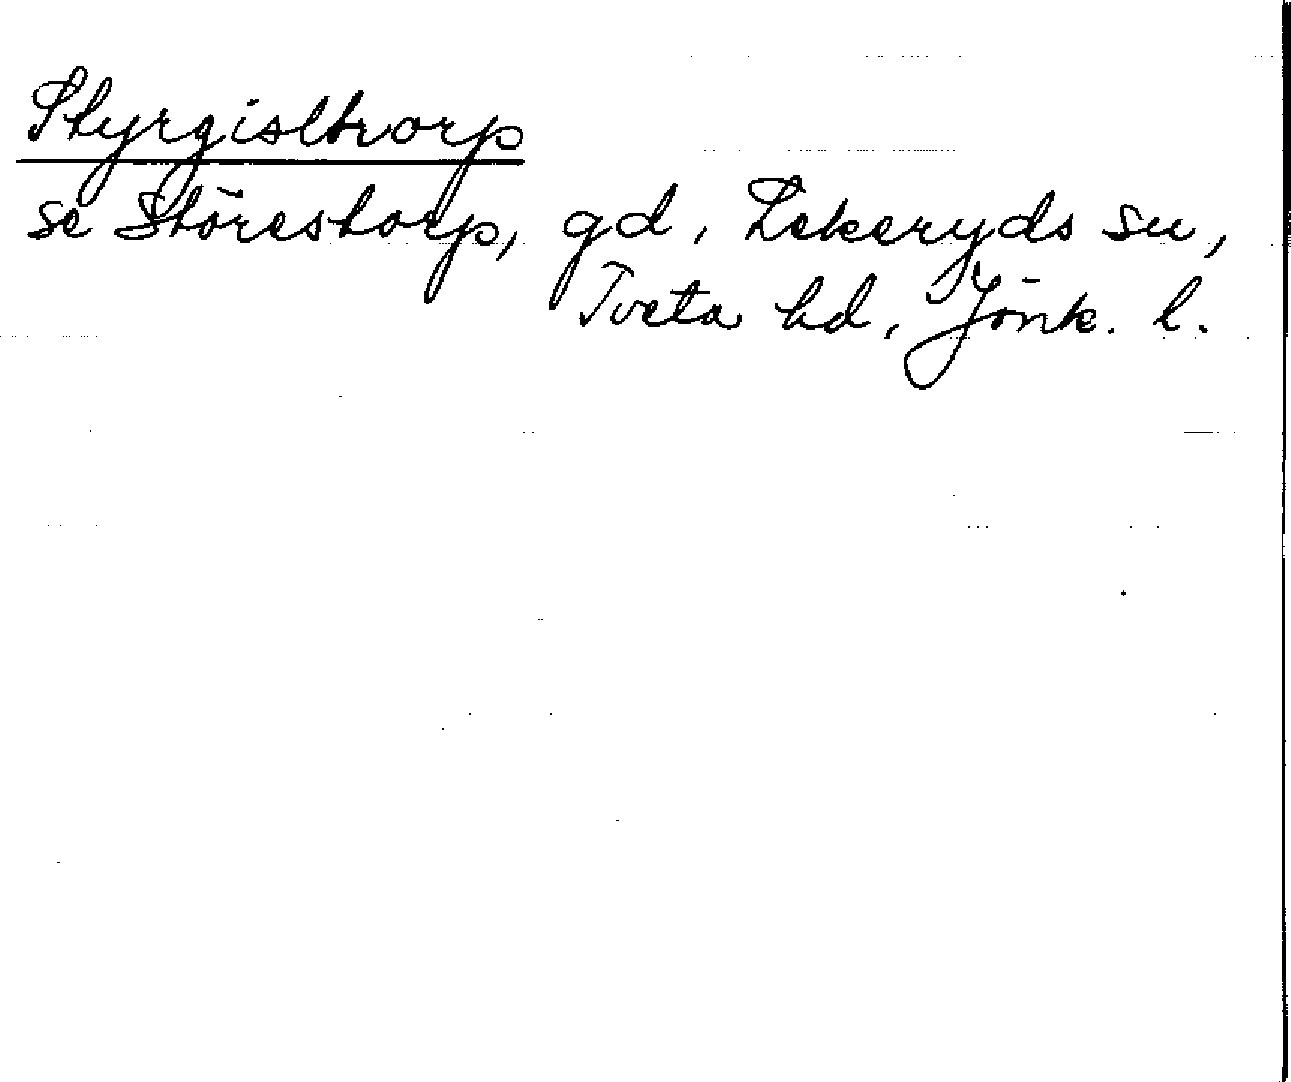 Styrgisltrorp
se Störestorp, gd, Lekeryds sn,
Tveta hd, Jönk. l.